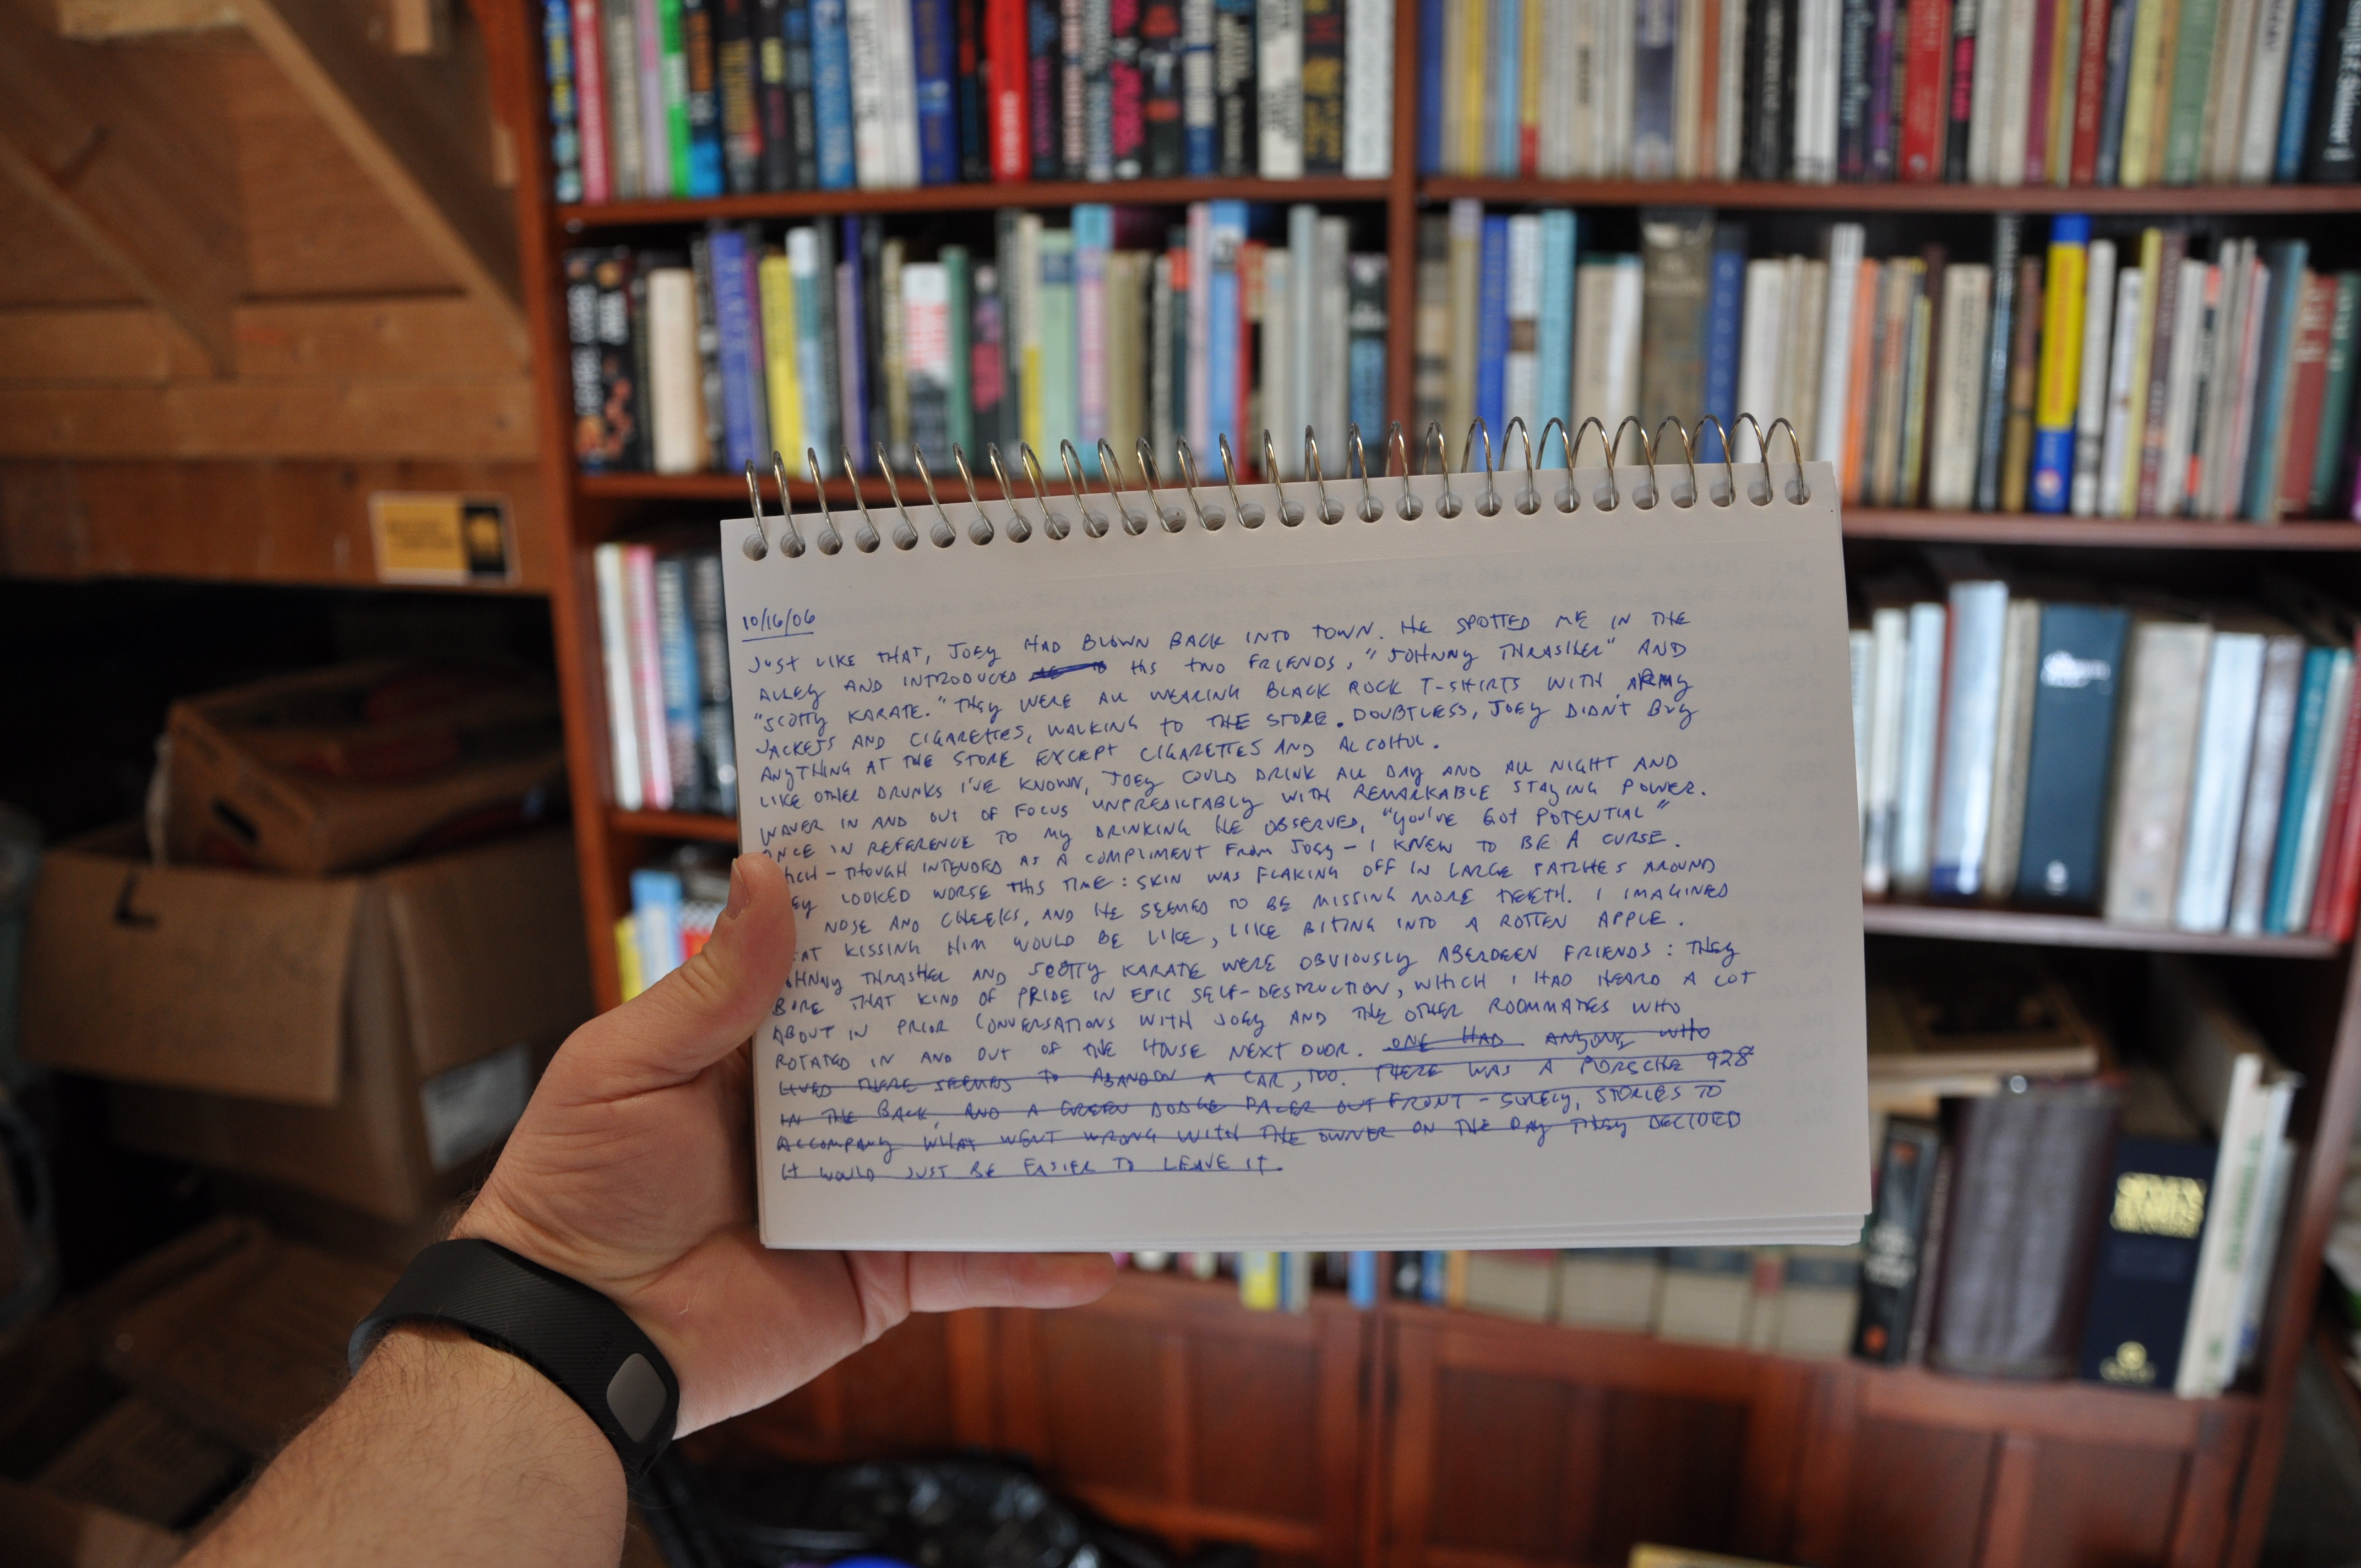 10/16/06
JUST LIKE THAT, JOEY HAD BLOWN BACK INTO TOWN. HE SPOTTED ME IN THE
ALLEY AND INTRODUCED HIS TWO FRIENDS, "JOHNNY THRASHER" AND
"SCOTTY KARATE." THEY WERE ALL WEARING BLACK ROCK T-SHIRTS WITH ARMY
JACKETS AND CIGARETTES, WALKING TO THE STORE. DOUBTLESS, JOEY DIDN'T BUY
ANYTHING AT THE STORE EXCEPT CIGARETTES AND ALCOHOL.
LIKE OTHER DRUNKS I'VE KNOWN, JOEY COULD DRINK ALL DAY AND ALL NIGHT AND
WAVER IN AND OUT OF FOCUS UNPREDICTABLY WITH REMARKABLE STAYING POWER.
ONCE IN REFERENCE TO MY DRINKING HE OBSERVED, "YOU'VE GOT POTENTIAL"
HICH - THOUGH INTENDED AS A COMPLIMENT FROM JOEY - I KNEW TO BE A CURSE.
EY LOOKED WORSE THIS TIME: SKIN WAS FLAKING OFF IN LARGE PATCHES AROUND
NOSE AND CHEEKS, AND HE SEEMED TO BE MISSING MORE TEETH. I IMAGINED
AT KISSING HIM WOULD BE LIKE, LIKE BITING INTO A ROTTEN APPLE.
OHNNY THRASHER AND SCOTTY KARATE WERE OBVIOUSLY ABERDEEN FRIENDS: THEY
BORE THAT KIND OF PRIDE IN EPIC SELF-DESTRUCTION, WHICH I HAD HEARD A LOT
ABOUT IN PRIOR CONVERSATIONS WITH JOEY AND THE OTHER ROOMMATES WHO
ROTATED IN AND OUT OF THE HOUSE NEXT DOOR. ONE HAD ANYONE WHO
LIVED THERE SEEMED TO ABANDON A CAR, TOO. THERE WAS A PORSCHE 928
IN THE BACK, AND A GREEN DODGE PACER OUT FRONT - SURELY, STORIES TO
ACCOMPANY WHAT WENT WRONG WITH THE OWNER ON THE DAY THEY DECIDED
IT WOULD JUST BE EASIER TO LEAVE IT.